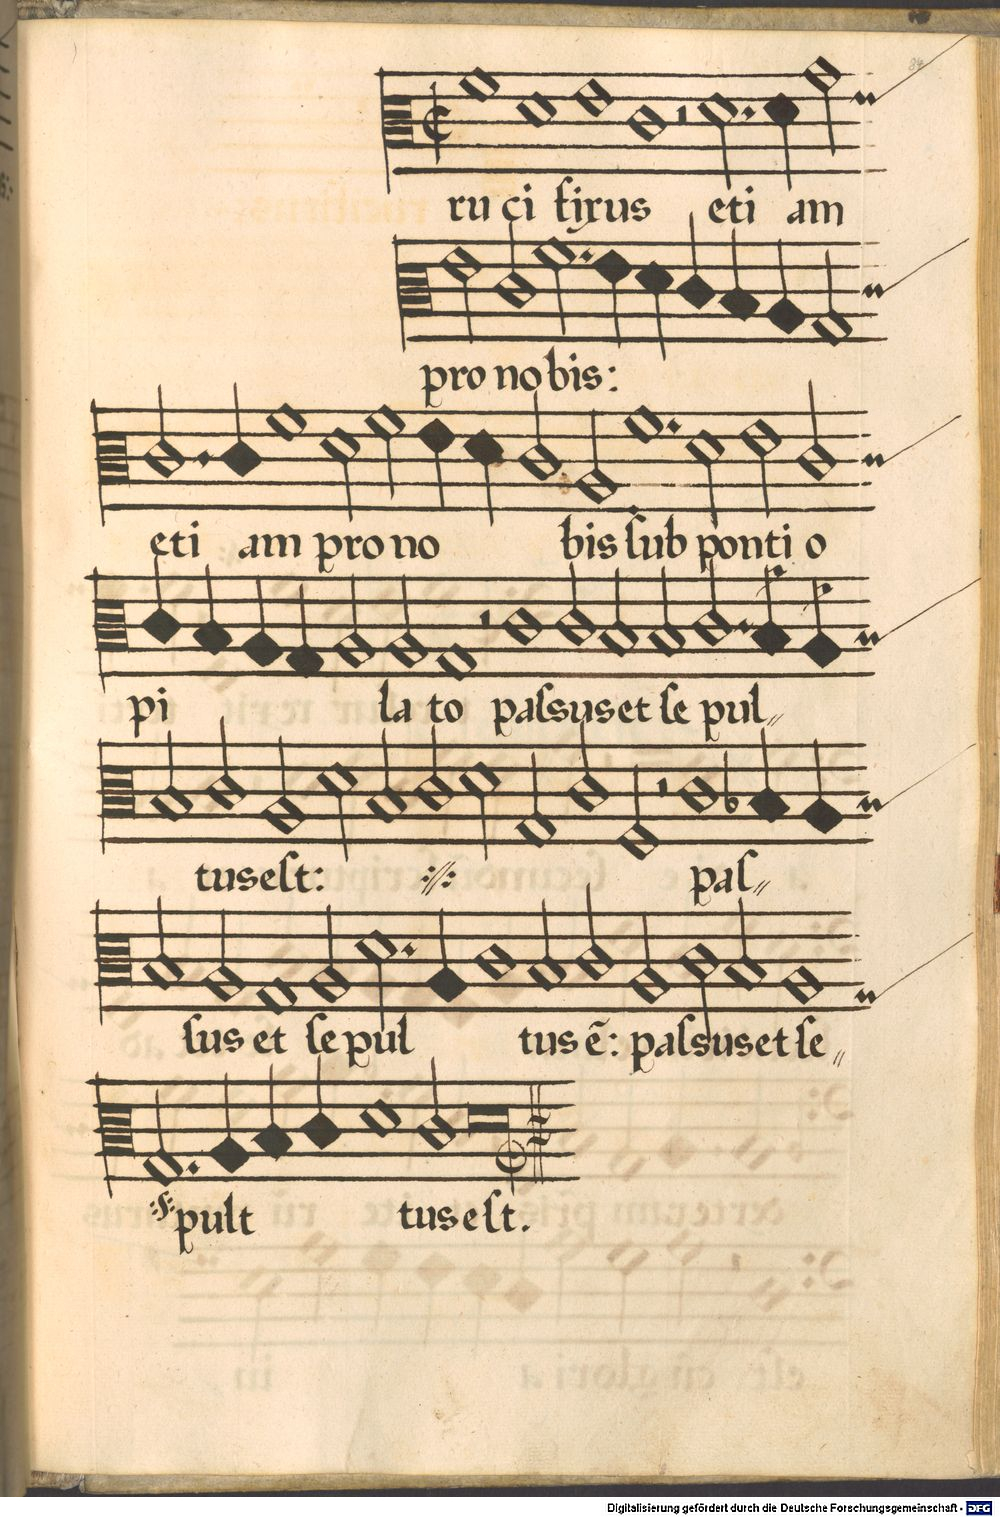 84
ru ci fixus eti am
pro no bis:
eti am pro no bis sub ponti o
pi la to passus et se pul〃
tus est: ://: pas〃
sus et se pul tus ē: passus et se〃
pult tus est.
Digitalisierung gefördert durch die Deutsche Forschungsgemeinschaft - DFG